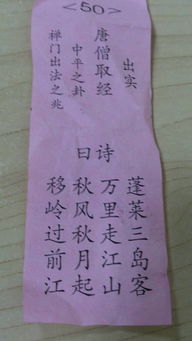 <50>
出实
唐僧取经
中平之卦
禅门出法之兆
曰诗
蓬莱三岛客
万里走江山
秋风秋月起
移岭过前江